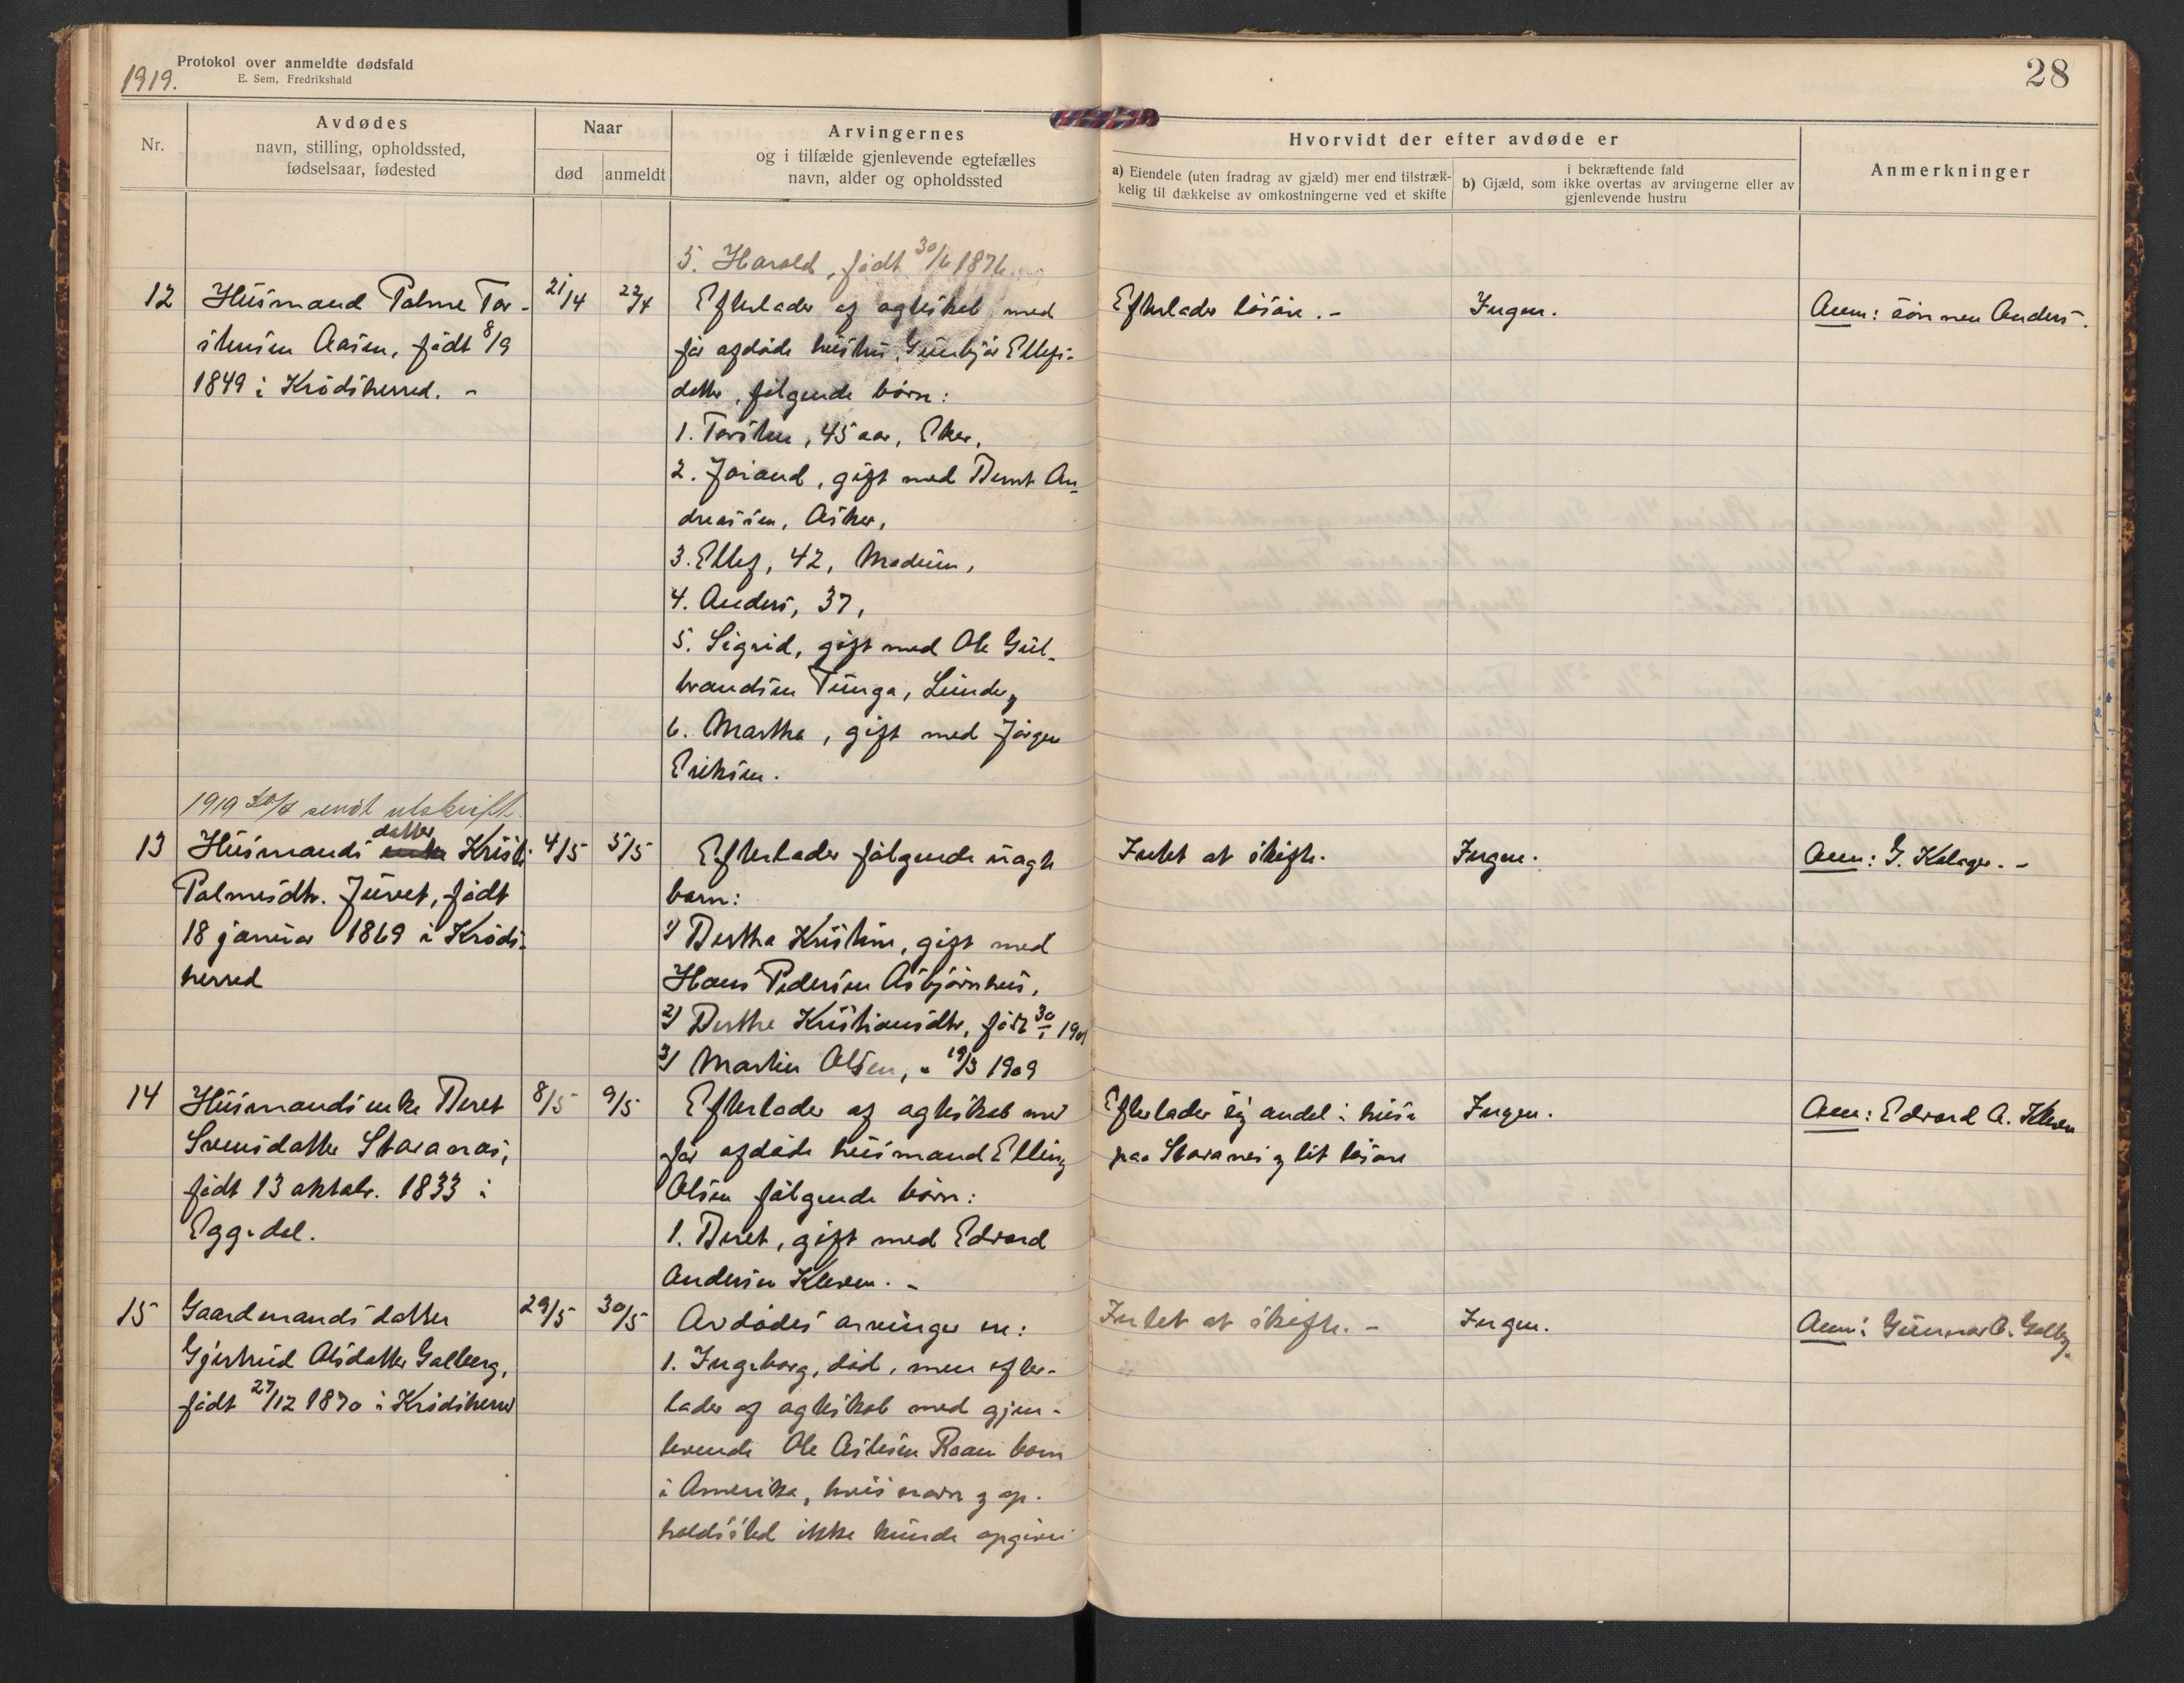 1919.
Protokol over anmeldte dødsfald
E. Sem, Fredrikshald
28
Nr.
Avdødes
navn, stilling, opholdssted,
fødselsaar, fødested
Naar
død
anmeldt
Arvingernes
og i tilfælde gjenlevende egtefælles
navn, alder og opholdssted
Hvorvidt der efter avdøde er
a) Eiendele (uten fradrag av gjæld) mer end tilstræk-
kelig til dækkelse av omkostningerne ved et skifte
i bekræftende fald
b) Gjæld, som ikke overtas av arvingerne eller av
gjenlevende hustru
Anmerkninger
5. Harald, født 30/6 1876
12
Husmand Palme Tor-
stensen Aasen, født 8/9
1849 i Krødsherred. -
21/4
22/4
Efterlader af egteskab med
før afdøde hustru Gunbjør Ellefs-
datter, følgende børn:
1. Torsten, 45 aar, Eker,
2. Jørand, gift med Bernt An-
dreassen, Asker,
3. Ellef, 42, Modum,
4. Anders, 37,
5. Sigrid, gift med Ole Gul-
brandsen Tunga, Lunder,
6. Martha, gift med Jørgen
Eriksen.
Efterlader løsøre. -
Ingen.
Anm: sønnen Anders.
1919 20/8 sendt utskrift.
13
Husmands datter enke Kristi
Palmesdtr. Juvet, født
18 januar 1869 i Krøds-
herred
4/5
5/5
Efterlader følgende uegte
barn:
1) Bertha Kristine, gift med
Hans Pedersen Asbjørnhus,
2) Berthe Kristiansdtr, født 30/1 1901
3) Martin Olsen, " 19/3 1909
Intet at skifte.
Ingen.
Anm: G. Kolager. -
14
Husmandsenke Beret
Svensdatter Storanæs,
født 13 oktobr. 1833 i
Eggedal.
8/5
9/5
Efterlader af egteskab med
før afdøde husmand Elling
Olsen følgende børn:
1. Beret, gift med Edvard
Andersen Kleven. -
Efterlader sig andel i huse
paa Storanes og lit løsøre
Ingen.
Anm: Edvard A. Kleven
15
Gaardmandsdatter
Gjertrud Olsdatter Golberg,
født 27/12 1870 i Krødsherred
29/5
30/5
Avdødes arvinger er:
1. Ingeborg, død, men efter-
lader af egteskab med gjen-
levende Ole Aslesen Raaen barn
i Amerika, hvis navn og op-
holdssted ikke kunde opgives
Intet at skifte. -
Ingen.
Anm: Gunnar O. Golbg.